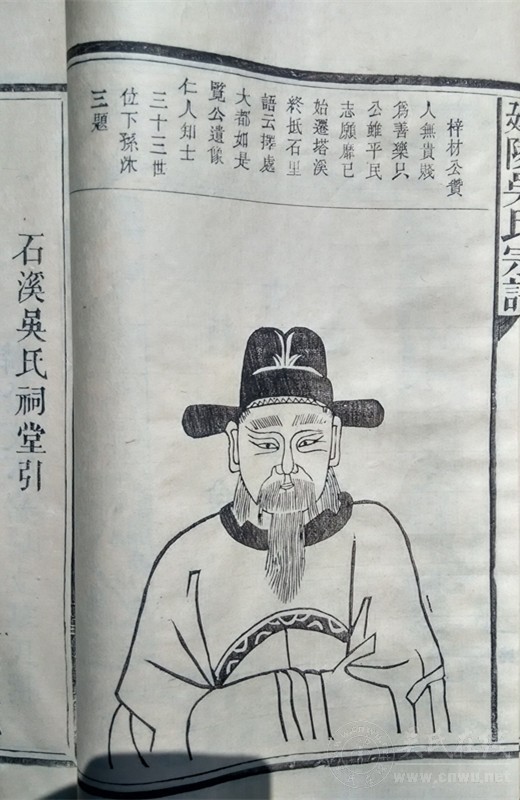 延陵吳氏宗譜
梓材公贊
人無貴賤
爲善樂只
公雖平民
志願靡已
始遷塔溪
終抵石里
語云擇處
大都如是
覽公遺像
仁人知士
三十三世
位下孫沐
三題
石溪吳氏祠堂引
www.cnwu.net